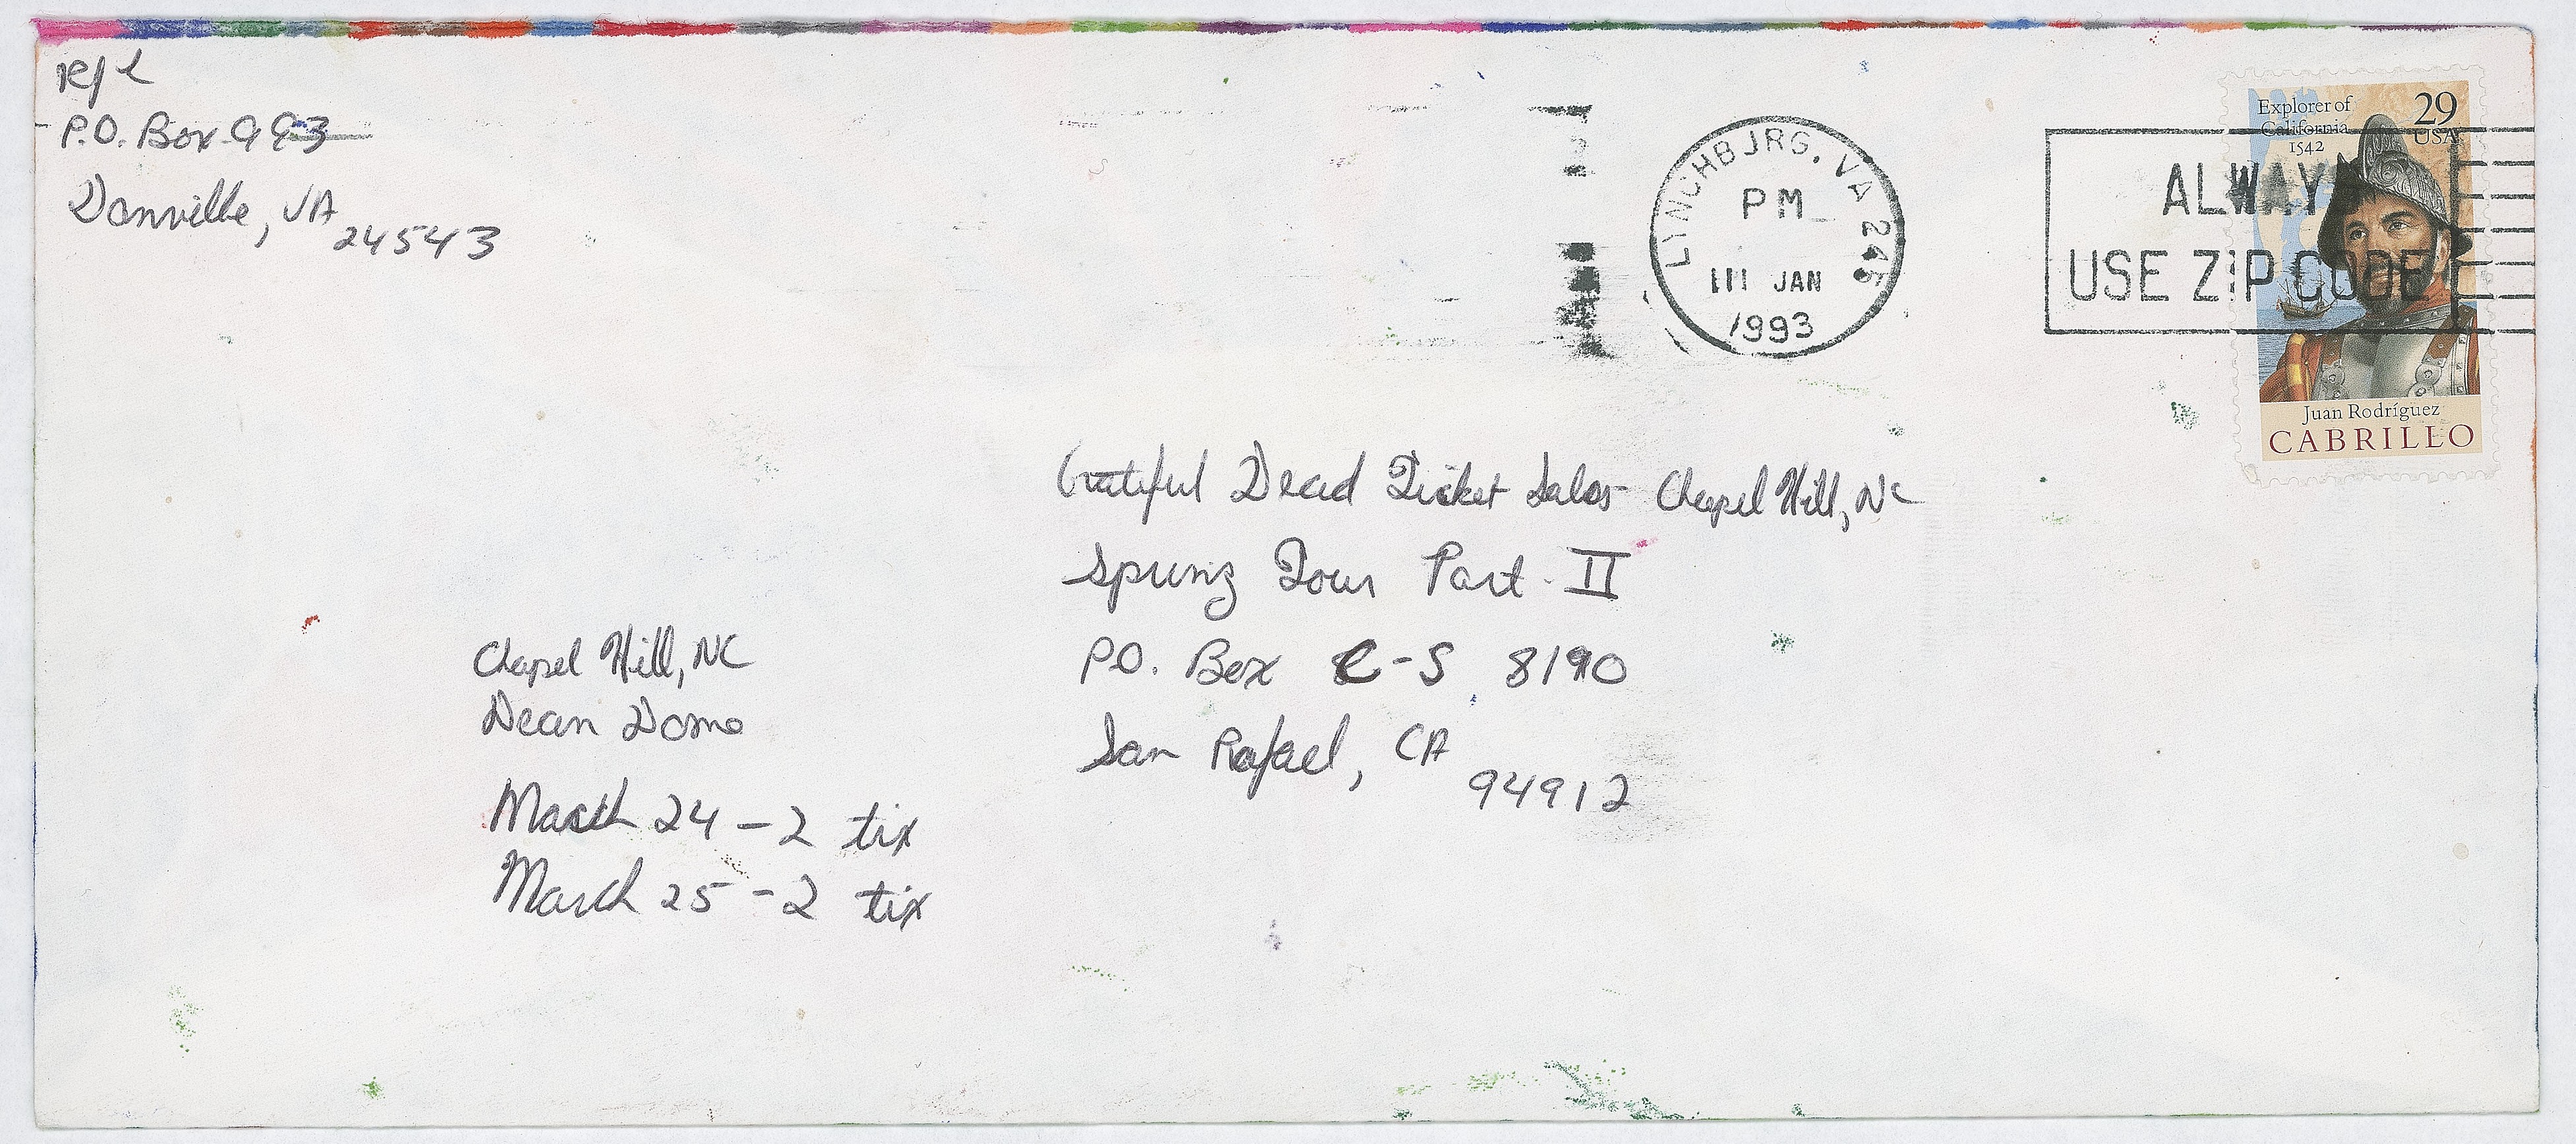 P.O. Box 993
Danville, VA
24543
LYNCHBURG, VA 245
PM
JAN
1993
ALWAYS
USE ZIP CODE
Explorer of
California
1542
29
USA
Juan Rodríguez
CABRILLO
Grateful Dead Ticket Sales Chapel Hill, NC
Spring Tour Part II
P.O. Box C-S 8190
San Rafael, CA
94912
Chapel Hill, NC
Dean Dome
March 24 - 2 tix
March 25 - 2 tix